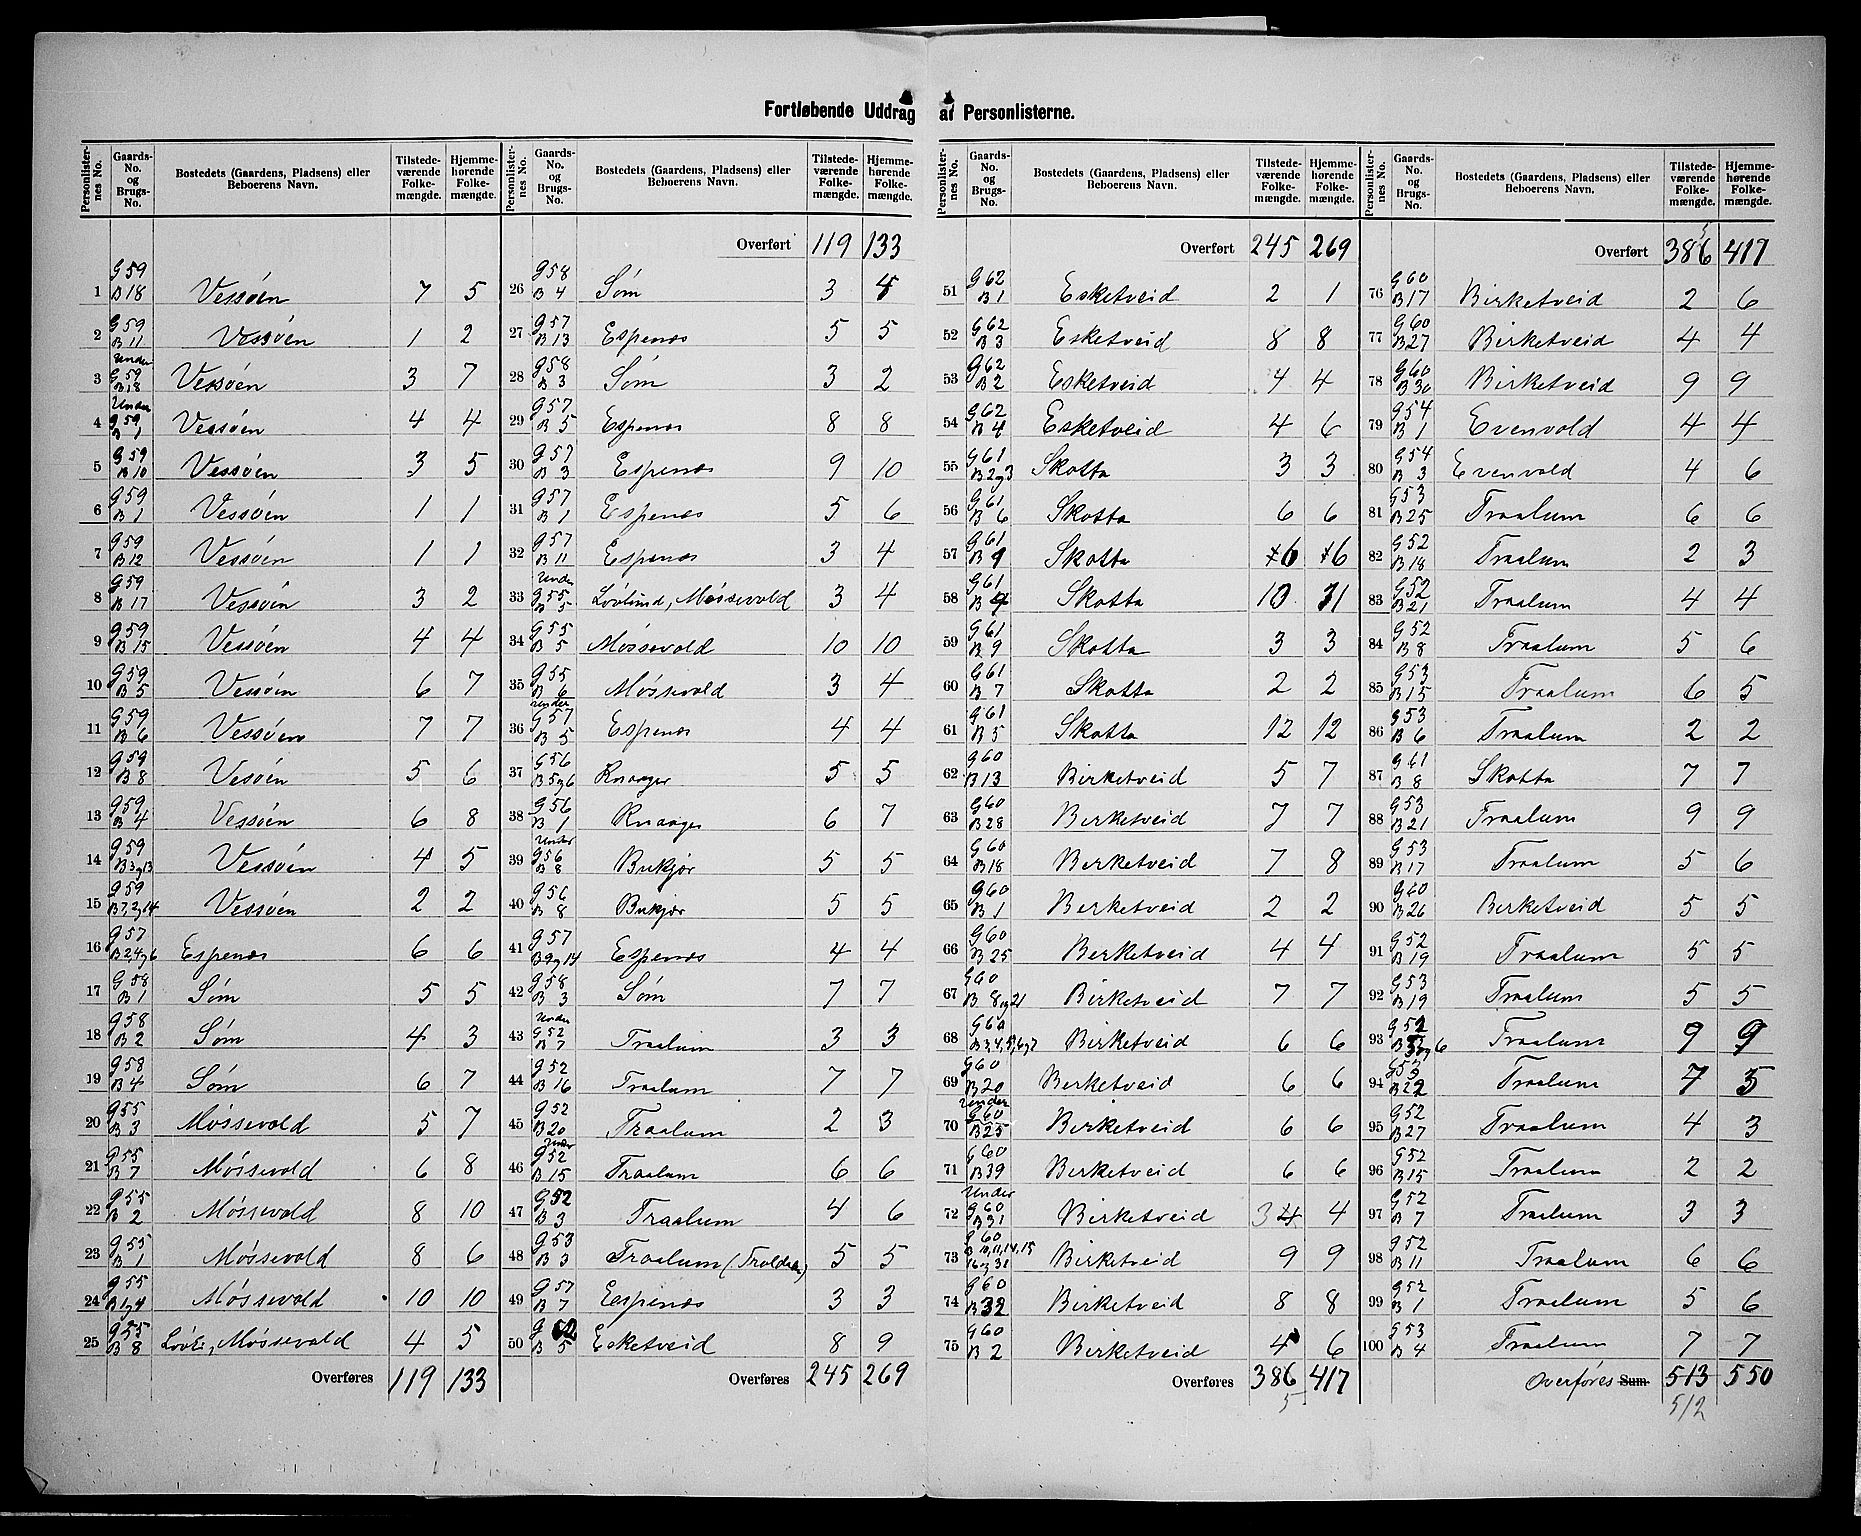 Fortløbende Uddrag af Personlisterne.
Personlisternes No. | Gaards-No. og Brugs-No. | Bostedets (Gaardens, Pladsens) eller Beboerens Navn. | Tilstedeværende Folkemængde. | Hjemmehørende Folkemængde.
1 | G 59 B 18 | Vessøen | 7 | 5
2 | G 59 B 11 | Vessøen | 1 | 2
3 | Under G 59 B 18 | Vessøen | 3 | 7
4 | Under G 59 B 1 | Vessøen | 4 | 4
5 | G 59 B 10 | Vessøen | 3 | 5
6 | G 59 B 1 | Vessøen | 1 | 1
7 | G 59 B 12 | Vessøen | 1 | 1
8 | G 59 B 17 | Vessøen | 3 | 2
9 | G 59 B 15 | Vessøen | 4 | 4
10 | G 59 B 5 | Vessøen | 6 | 7
11 | G 59 B 6 | Vessøen | 7 | 7
12 | G 59 B 8 | Vessøen | 5 | 6
13 | G 59 B 4 | Vessøen | 6 | 8
14 | G 59 B 3 og 13 | Vessøen | 4 | 5
15 | G 59 B 7, 2 og 14 | Vessøen | 2 | 2
16 | G 57 B 2, 4 og 6 | Espenæs | 6 | 6
17 | G 58 B 1 | Søm | 5 | 5
18 | G 58 B 2 | Søm | 4 | 3
19 | G 58 B 4 | Søm | 6 | 7
20 | G 55 B 3 | Møssevold | 5 | 7
21 | G 55 B 7 | Møssevold | 6 | 8
22 | G 55 B 2 | Møssevold | 8 | 10
23 | G 55 B 1 | Møssevold | 8 | 6
24 | G 55 B 1 og 4 | Møssevold | 10 | 10
25 | G 55 B 8 | Møssevold | 4 | 5
Overføres 119 133
Personlisternes No. | Gaards-No. og Brugs-No. | Bostedets (Gaardens, Pladsens) eller Beboerens Navn. | Tilstedeværende Folkemængde. | Hjemmehørende Folkemængde.
Overført 119 133
26 | G 58 B 4 | Søm | 3 | 4
27 | G 57 B 13 | Espenæs | 5 | 5
28 | G 58 B 3 | Søm | 3 | 2
29 | G 57 B 5 | Espenæs | 8 | 8
30 | G 57 B 3 | Espenæs | 9 | 10
31 | G 57 B 1 | Espenæs | 5 | 6
32 | G 57 B 11 | Espenæs | 3 | 4
33 | Under G 55 B 5 | Løvlund, Møssevold | 3 | 4
34 | G 55 B 5 | Møssevold | 10 | 10
35 | G 55 B 6 | Møssevold | 3 | 4
36 | under G 57 B 5 | Espenæs | 4 | 4
37 | G 56 B 5 og 6 | Rnaages | 5 | 5
38 | G 56 B 1 | Rnaages | 6 | 7
39 | Under G 56 B 8 | Bukjør | 5 | 5
40 | G 56 B 8 | Bukjør | 5 | 5
41 | G 57 B 9 og 14 | Espenæs | 4 | 4
42 | G 58 B 3 | Søm | 7 | 7
43 | Under G 52 B 7 | Traalum | 3 | 3
44 | G 52 B 16 | Traalum | 7 | 7
45 | G 52 B 20 | Traalum | 2 | 3
46 | Under G 52 B 15 | Traalum | 6 | 6
47 | G 52 B 3 | Traalum | 4 | 6
48 | G 53 B 3 | Traalum | 5 | 5
49 | G 57 B 7 | Eespenæs | 3 | 3
50 | G 62 B 5 | Esketveid | 8 | 9
Overføres 245 269
Personlisternes No. | Gaards-No. og Brugs-No. | Bostedets (Gaardens, Pladsens) eller Beboerens Navn. | Tilstedeværende Folkemængde. | Hjemmehørende Folkemængde.
Overført 245 269
51 | G 62 B 1 | Esketveid | 2 | 1
52 | G 62 B 3 | Esketveid | 8 | 8
53 | G 62 B 2 | Esketveid | 4 | 4
54 | G 62 B 4 | Esketveid | 4 | 6
55 | G 61 B 2 og 3 | Skotta | 3 | 3
56 | G 61 B 6 | Skotta | 6 | 6
57 | G 61 B 1 | Skotta | 6 | 6
58 | G 61 B 4 | Skotta | 10 | 11
59 | G 61 B 9 | Skotta | 3 | 3
60 | G 61 B 7 | Skotta | 2 | 2
61 | G 61 B 5 | Skotta | 12 | 12
62 | G 60 B 13 | Birketveid | 5 | 7
63 | G 60 B 28 | Birketveid | 7 | 7
64 | G 60 B 18 | Birketveid | 7 | 8
65 | G 60 B 1 | Birketveid | 2 | 2
66 | G 60 B 25 | Birketveid | 4 | 4
67 | G 60 B 8 og 21 | Birketveid | 7 | 7
68 | G 60 B 3, 4, 5, 6 og 7 | Birketveid | 6 | 6
69 | G 60 B 20 | Birketveid | 6 | 6
70 | under G 60 B 25 | Birketveid | 6 | 6
71 | G 60 B 39 | Birketveid | 6 | 6
72 | Under G 60 B 31 | Birketveid | 3 4 | 4
73 | G 60 B 10, 11, 14, 15 16 og 31 | Birketveid | 9 | 9
74 | G 60 B 32 | Birketveid | 8 | 8
75 | G 60 B 2 | Birketveid | 4 | 6
Overføres 386 417
5
Personlisternes No. | Gaards-No. og Brugs-No. | Bostedets (Gaardens, Pladsens) eller Beboerens Navn. | Tilstedeværende Folkemængde. | Hjemmehørende Folkemængde.
5
Overført 386 417
76 | G 60 B 17 | Birketveid | 2 | 6
77 | G 60 B 27 | Birketveid | 4 | 4
78 | G 60 B 30 | Birketveid | 9 | 9
79 | G 54 B 1 | Evenvold | 4 | 4
80 | G 54 B 3 | Evenvold | 4 | 6
81 | G 53 B 25 | Traalum | 6 | 6
82 | G 52 B 18 | Traalum | 2 | 3
83 | G 52 B 21 | Traalum | 4 | 4
84 | G 52 B 8 | Traalum | 5 | 6
85 | G 53 B 15 | Traalum | 6 | 5
86 | G 53 B 6 | Traalum | 2 | 2
87 | G 61 B 8 | Skotta | 7 | 7
88 | G 53 B 21 | Traalum | 9 | 9
89 | G 53 B 17 | Traalum | 5 | 6
90 | G 60 B 26 | Birketveid | 5 | 5
91 | G 52 B 19 | Traalum | 5 | 5
92 | G 53 B 19 | Traalum | 5 | 5
93 | G 52 B 5 og 6 | Traalum | 9 | 9
94 | G 53 B 22 | Traalum | 7 | 5
95 | G 52 B 27 | Traalum | 4 | 3
96 | G 52 B 15 | Traalum | 2 | 2
97 | G 52 B 7 | Traalum | 3 | 3
98 | G 52 B 11 | Traalum | 6 | 6
99 | G 52 B 1 | Traalum | 5 | 6
100 | G 53 B 4 | Traalum | 7 | 7
Overføres Sum 513 550
512